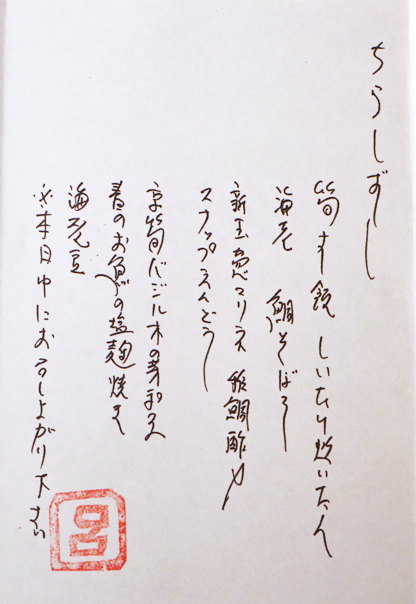 ちらしずし
筍すし飯 しいたけ炊いたん
海老 鯛そぼろ
新玉葱マリネ 稚鯛酢〆
スナップえんどう
京筍バジル木の芽和え
春のお魚の塩麹焼き
海老豆
※本日中にお召し上がり下さい
呂